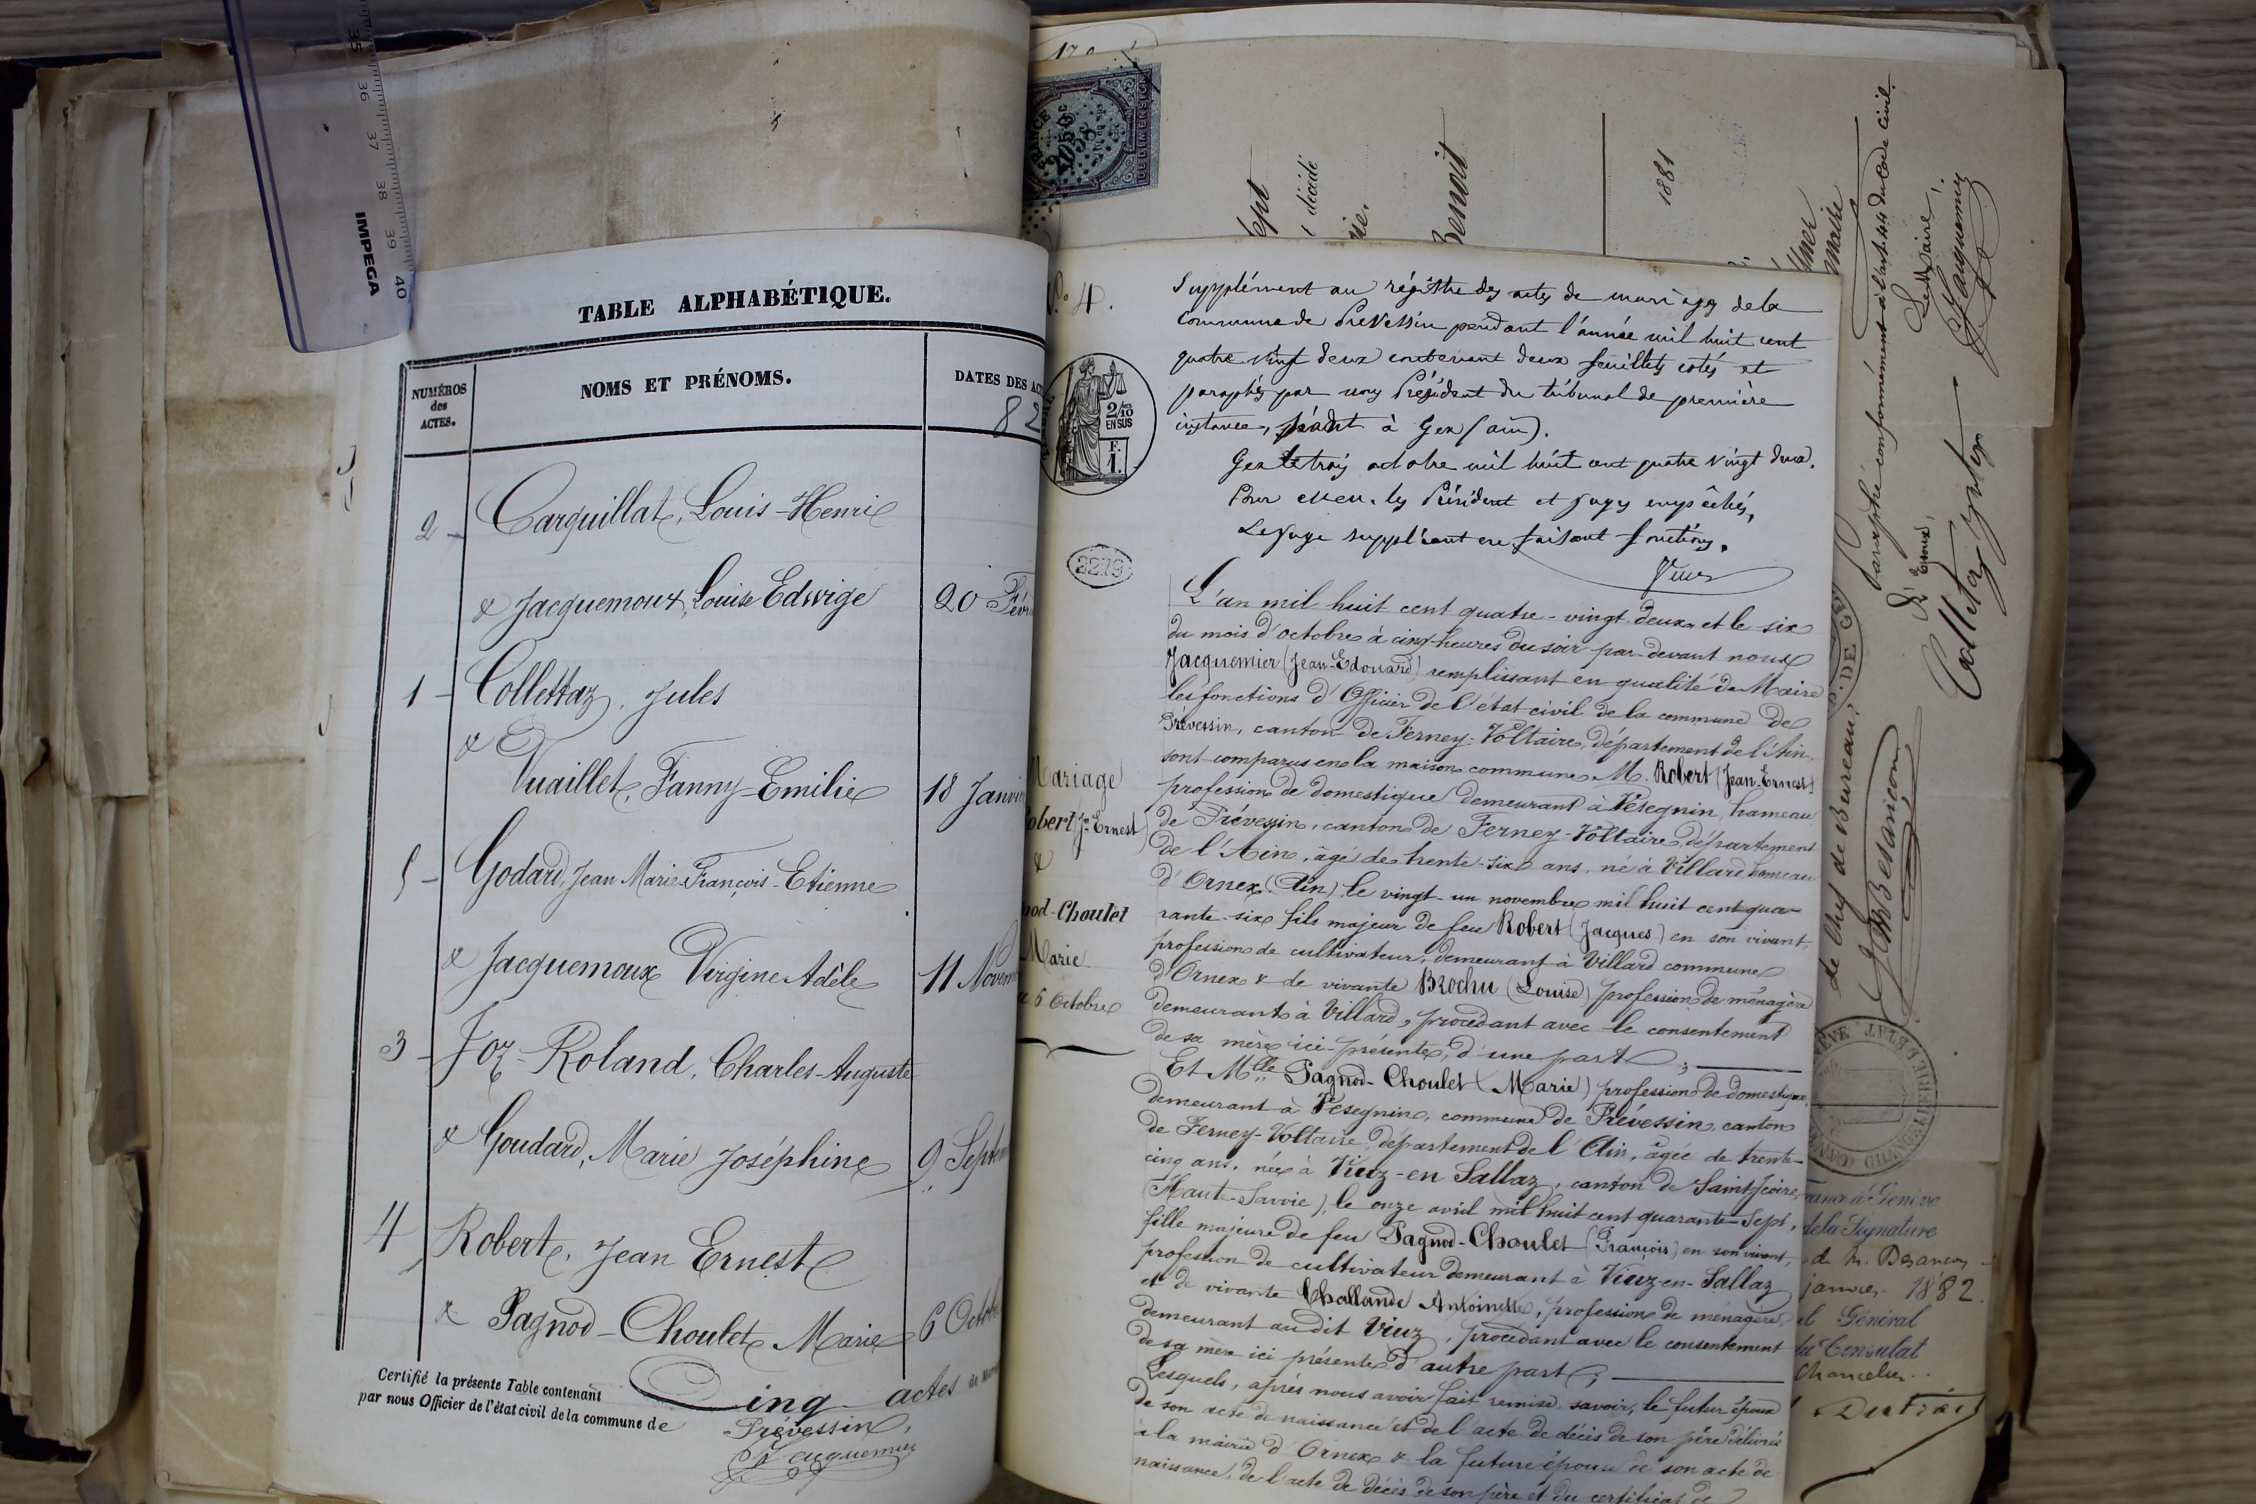 35 36 37 38 39 40
IMPEGA
TABLE ALPHABÉTIQUE.
NUMÉROS
des
ACTES.
NOMS ET PRÉNOMS.
DATES DES AC
82
2 - Carquillat, Louis-Henri
& Jacquemoux, Louise Edwige 20 Févr
1 - Collettaz, Jules
&
Vuaillet, Fanny-Emilie 18 Janvi
5 - Godard, Jean Marie-François-Etienne
& Jacquemoux Virgine Adèle 11 Novem
3 - Foz-Roland, Charles-Auguste
& Goudard, Marie Joséphine 9 Septem
4 Robert, Jean Ernest
& Pagnod-Choulet Marie 6 Octobre
Certifié la présente Table contenant Cinq actes de
par nous Officier de l'état civil de la commune de
Prévessin,
Jacquemier
No. 4.
2/10
EN SUS
F.
1.
2279
Supplément au régistre des actes de mariages de la
commune de Prévessin pendant l'année mil huit cent
quatre vingt deux contenant deux feuillets cotés et
paraphés par nous Président du tribunal de première
instance, séant à Gex (ain).
Gex le trois octobre mil huit cent quatre vingt deux.
Pour les Président et juges empêchés,
Le juge suppléant en faisant fonctions.
Mariage
Robert Jn Ernest
&
nod-Choulet
Marie
6 Octobre
L'an mil huit cent quatre-vingt-deux et le six
du mois d'octobre à cinq heures du soir par-devant nous
Jacquemier (Jean-Edouard) remplissant en qualité de Maire
les fonctions d'Officier de l'état civil de la commune de
Prévessin, canton de Ferney-Voltaire, département de l'Ain,
sont comparus en la maison commune M. Robert (Jean-Ernest)
profession de domestique demeurant à Vésegnin, hameau
de Prévessin, canton de Ferney-Voltaire, département
de l'Ain, âgé de trente-six ans, né à Villard hameau
d'Ornex (Ain) le vingt-un novembre mil huit cent qua-
rante-six fils majeur de feu Robert (Jacques) en son vivant,
profession de cultivateur, demeurant à Villard commune
d'Ornex & de vivante Brochu (Louise) profession de ménagère
demeurant à Villard, procédant avec le consentement
de sa mère ici présente, d'une part ;
Et Mlle Pagnod-Choulet (Marie) profession de domestique
demeurant à Vésegnin, commune de Prévessin, canton
de Ferney-Voltaire, département de l'Ain, âgée de trente-
cinq ans, née à Viuz-en Sallaz, canton de Saint-Jeoire,
(Haute-Savoie), le onze avril mil huit cent quarante-sept,
fille majeure de feu Pagnod-Choulet (François) en son vivant,
profession de cultivateur demeurant à Viuz-en-Sallaz
et de vivante Challande Antoinette, profession de ménagère,
demeurant audit Viuz, procédant avec le consentement
de sa mère ici présente d'autre part ;
Lesquels, après nous avoir fait remise savoir, le futur époux
de son acte de naissance et de l'acte de décès de son père délivrés
à la mairie d'Ornex & la future épouse de son acte de
naissance, de l'acte de décès de son père et du certificat de
DE DIMENSION
décidé
Benoit
1881
Paraphé conformément à l'art. 44 du Code civil.
Le Maire,
Jacquemier
Collettaz Jules
Le Chef de Bureau,
J. Besançon
France à Genève
de la Signature
de M. Besançon
janvier 1882
Général
du Consulat
Chancelier